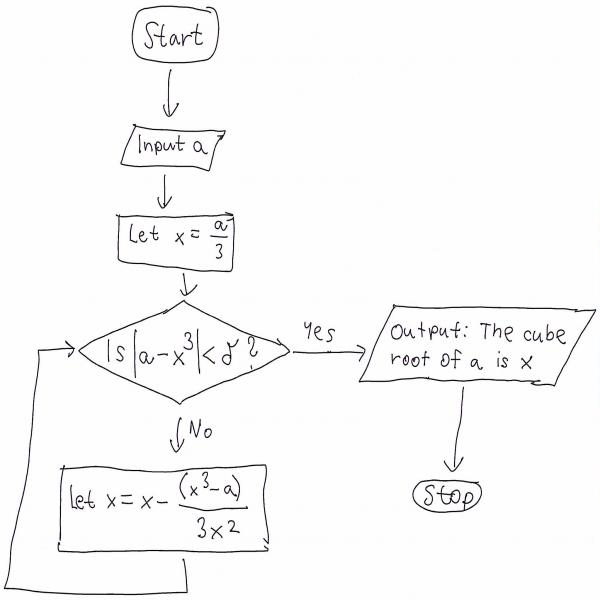 Start
Input a
Let x = a/3
Is |a-x³| < δ ?
Yes
Output: The cube
root of a is x
No
Let x = x - (x³-a)/3x²
Stop